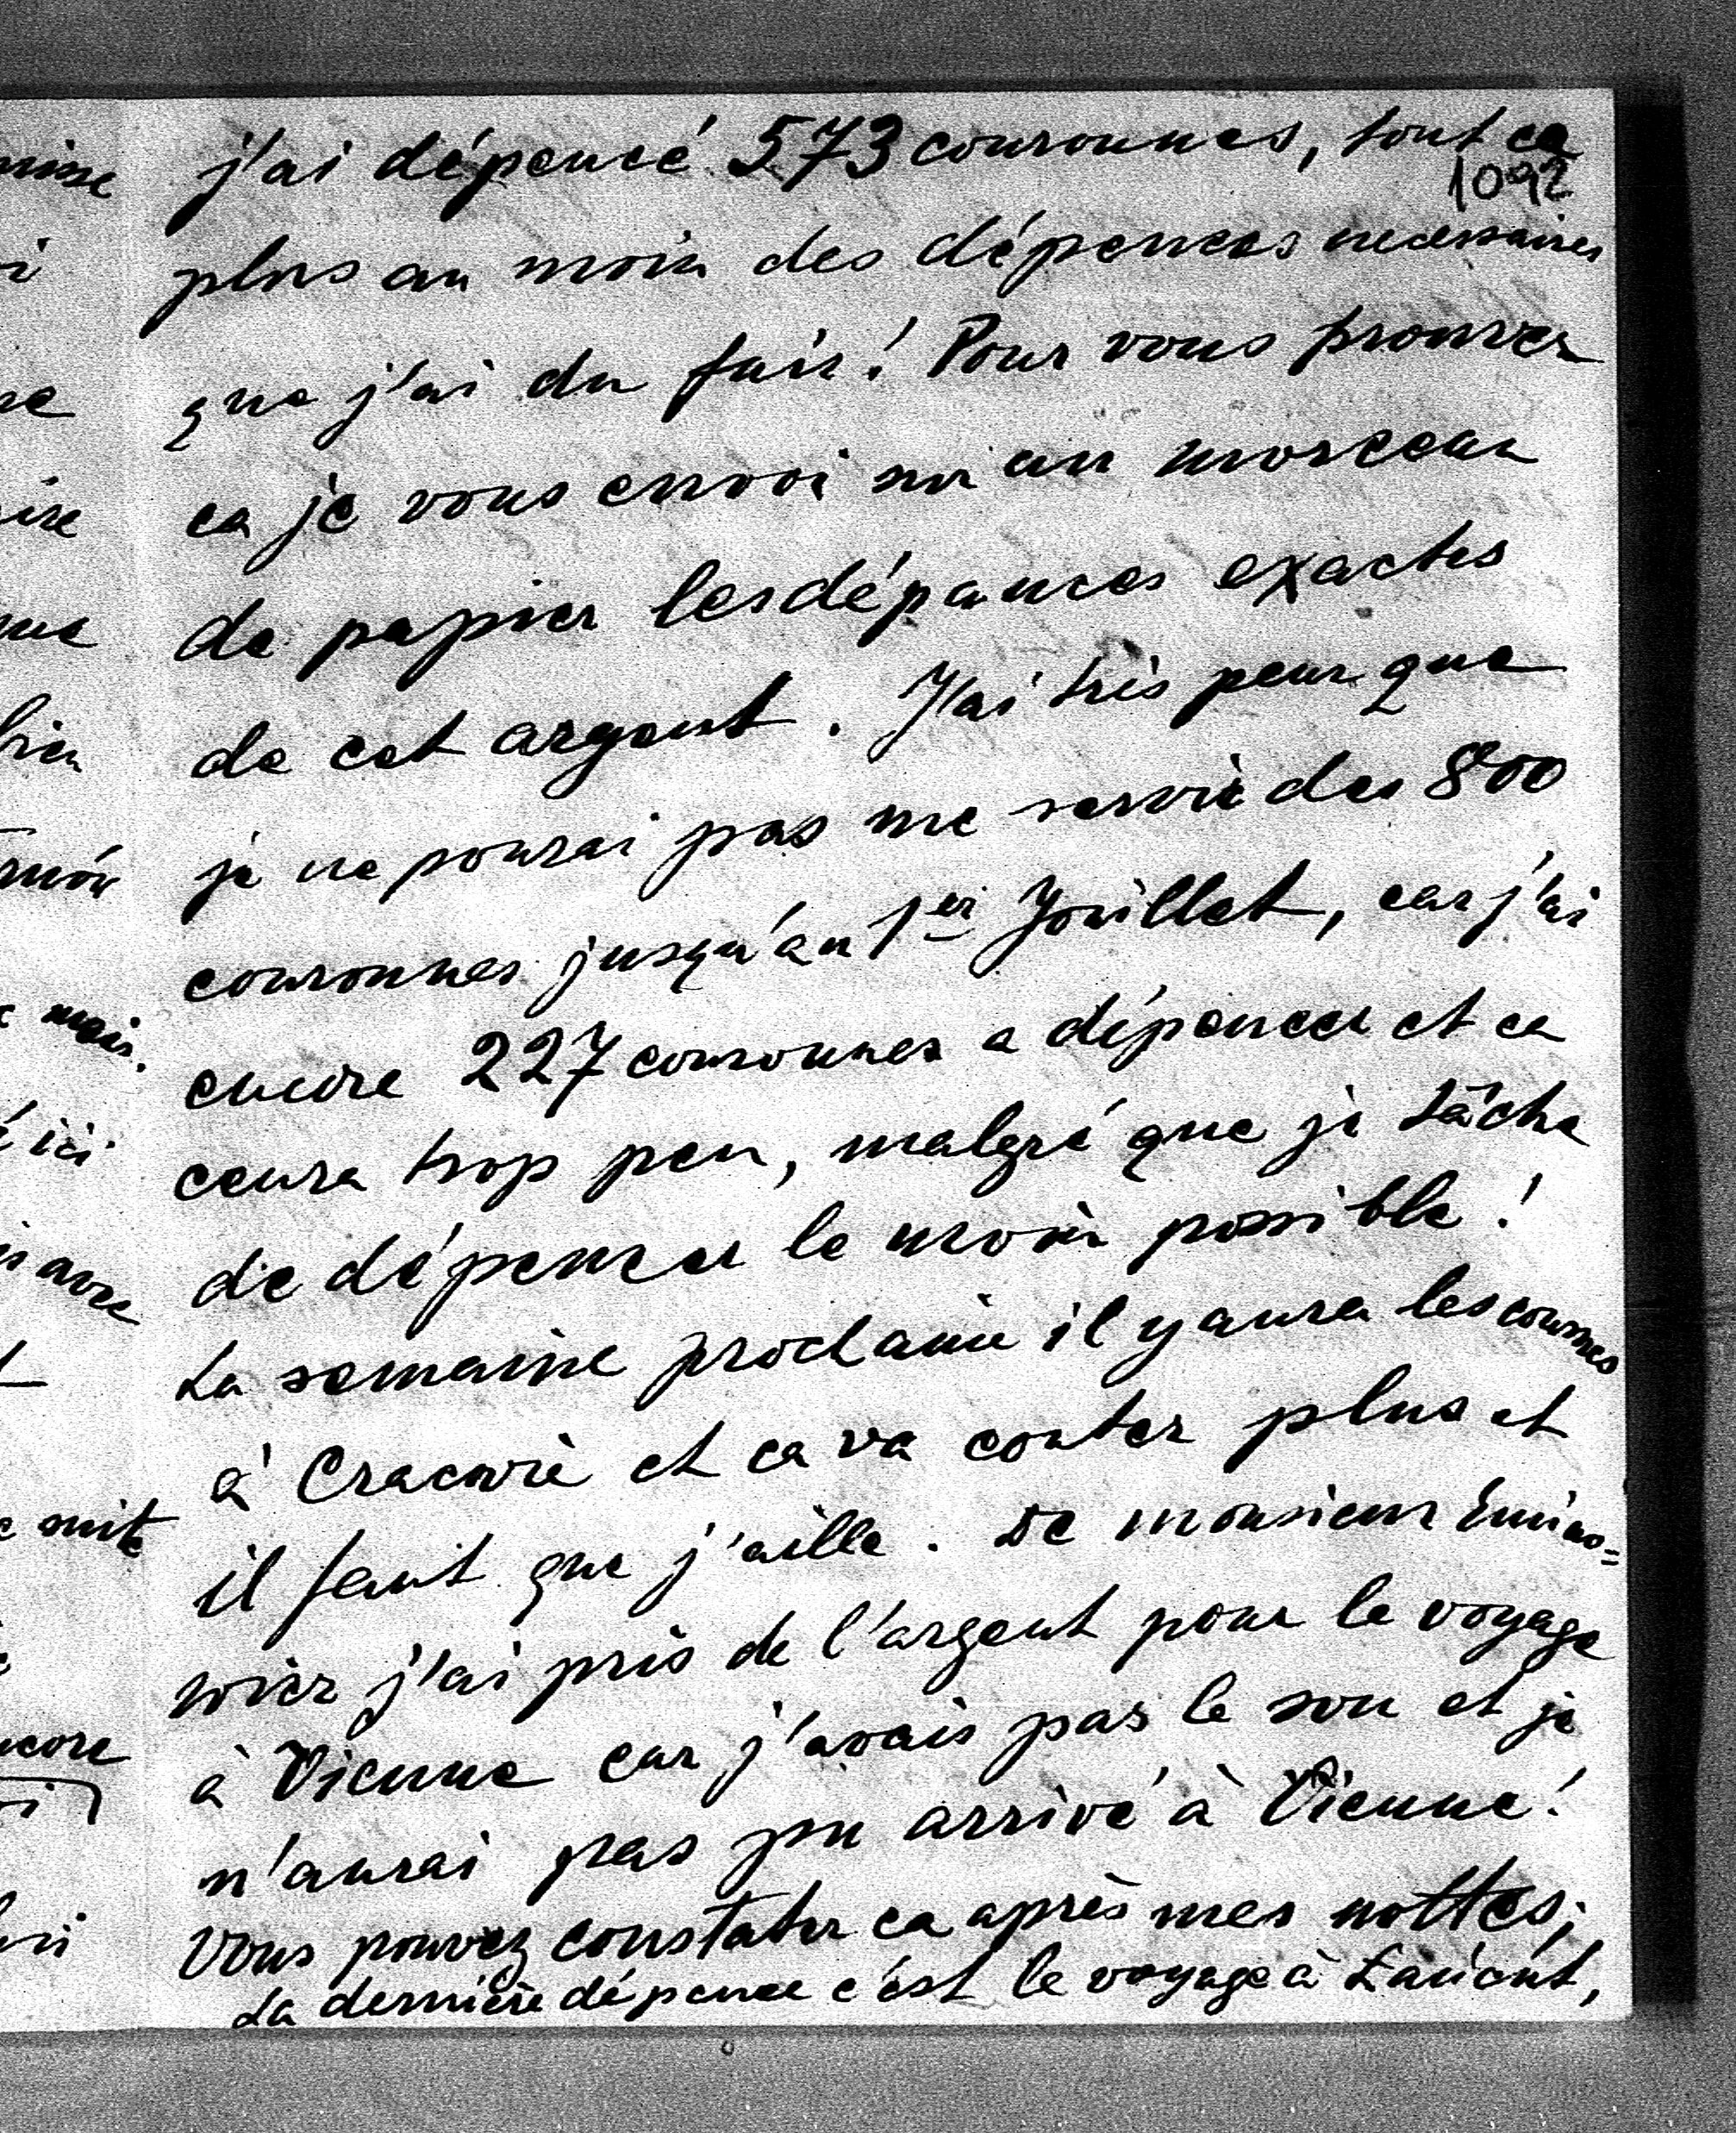 j'ai dépencé 573 couronnes, tout ca
1092
plus au moin des dépences necessaires
que j'ai du fair! Pour vous prouver
ca je vous envoi sur un morceau
de papier les dépances exactes
de cet argent. J'ai très peur que
je ne pourai pas me servir des 800
couronnes jusqu'au 1er Jouillet, car j'ai
encore 227 couronnes a dépencer et ca
ceura trop peu, malgré que je tâche
de dépencer le moin possible!
La semaine prochaine il y aura les courses
à Cracovie et ca va couter plus et
il faut que j'aille. De monsieur
j'ai pris de l'argent pour le voyage
à Vienne car j'avais pas le sou et je
n'aurai pas pu arrivé à Vienne!
Vous pouvez constater ca après mes nottes;
La dernière dépence c'est le voyage à Łańcut,